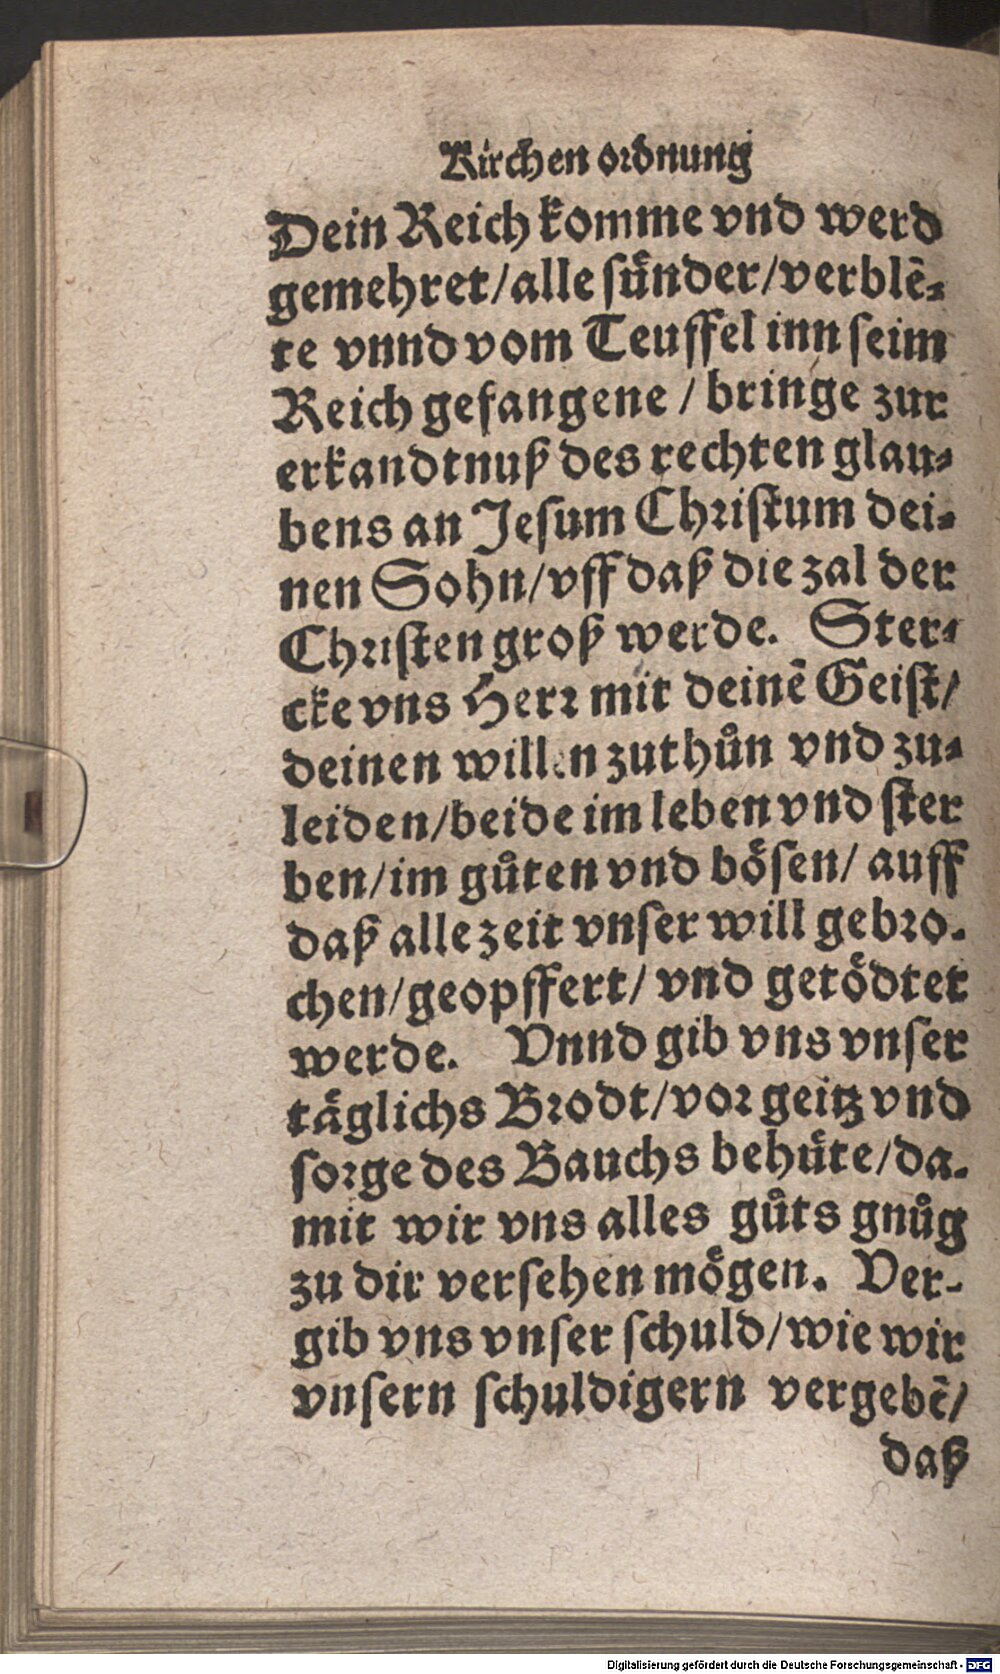 Kirchen ordnung
Dein Reich komme vnd werd
gemehret/alle sünder/verblē⸗
te vnnd vom Teuffel inn seim
Reich gefangene / bringe zur
erkandtnuß des rechten glau⸗
bens an Jesum Christum dei⸗
nen Sohn/vff daß die zal der
Christen groß werde. Ster⸗
cke vns Herr mit deinē Geist/
deinen willen zuthůn vnd zu⸗
leiden/beide im leben vnd ster
ben/im gůten vnd bösen/ auff
daß alle zeit vnser will gebro⸗
chen/geopffert/ vnd getödtet
werde. Vnnd gib vns vnser
täglichs Brodt/vor geitz vnd
sorge des Bauchs behüte/da⸗
mit wir vns alles gůts gnůg
zu dir versehen mögen. Ver⸗
gib vns vnser schuld/wie wir
vnsern schuldigern vergebē/
daß
Digitalisierung gefördert durch die Deutsche Forschungsgemeinschaft - DFG